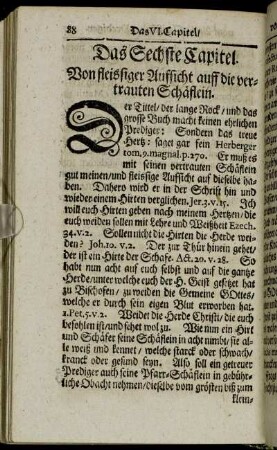 88 Das VI. Capitel/
Das Sechste Capitel.
Von fleissiger Auffsicht auff die ver-
trauten Schäflein.
Der Tittel/ der lange Rock/ und das
grosse Buch macht keinen ehelichen
Prediger: Sondern das treue
Hertz: saget gar fein Herberger
tom. 9. magnal. p. 270. Er muß es
mit seinen vertrauten Schäflein
gut meinen/ und fleissige Auffsicht auf dieselbe ha-
ben. Dahero wird er in der Schrift hin und
wieder einem Hirten verglichen. Jer. 3. v. 15. Ich
will euch Hirten geben nach meinem Hertzen/ die
euch weiden sollen mit Lehre und Weißheit Ezech.
34. v. 2. Sollen nicht die Hirten die Herde wei-
den? Joh. 10. v. 2. Der zur Thür hinein gehet/
der ist ein Hirte der Schafe. Act. 20. v. 28. So
habt nun acht auf euch selbst und auf die gantze
Herde/ unter welche euch der H. Geist gesetzt hat
zu Bischofen/ zu weiden die Gemeine GOttes/
welche er durch sein eigen Blut erworben hat.
1. Pet. 5. v. 2. Weidet die Herde Christi/ die euch
befohlen ist/ und sehet wol zu. Wie nun ein Hirt
und Schäfer seine Schäflein in acht nimbt/ sie al-
le weiß und kennet/ welche starck oder schwach/
kranck oder gesund seyn. Also soll ein getreuer
Prediger auch seine Pfarr-Schäflein in gebühr-
liche Obacht nehmen/ dieselbe vom grösten biß zum
klein-